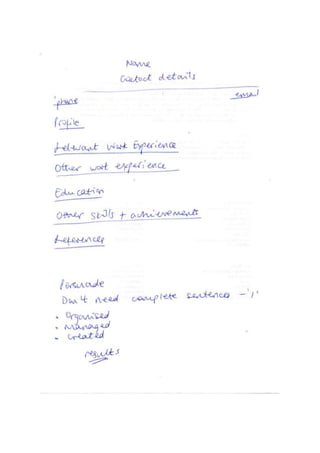 Name
Contact details
phone email
Profile
Relevant Work Experience
Other work experience
Education
Other skills + achievements
References
Persuade
Don't need complete sentences - 'I'
• Organised
• Managed
• Created
results